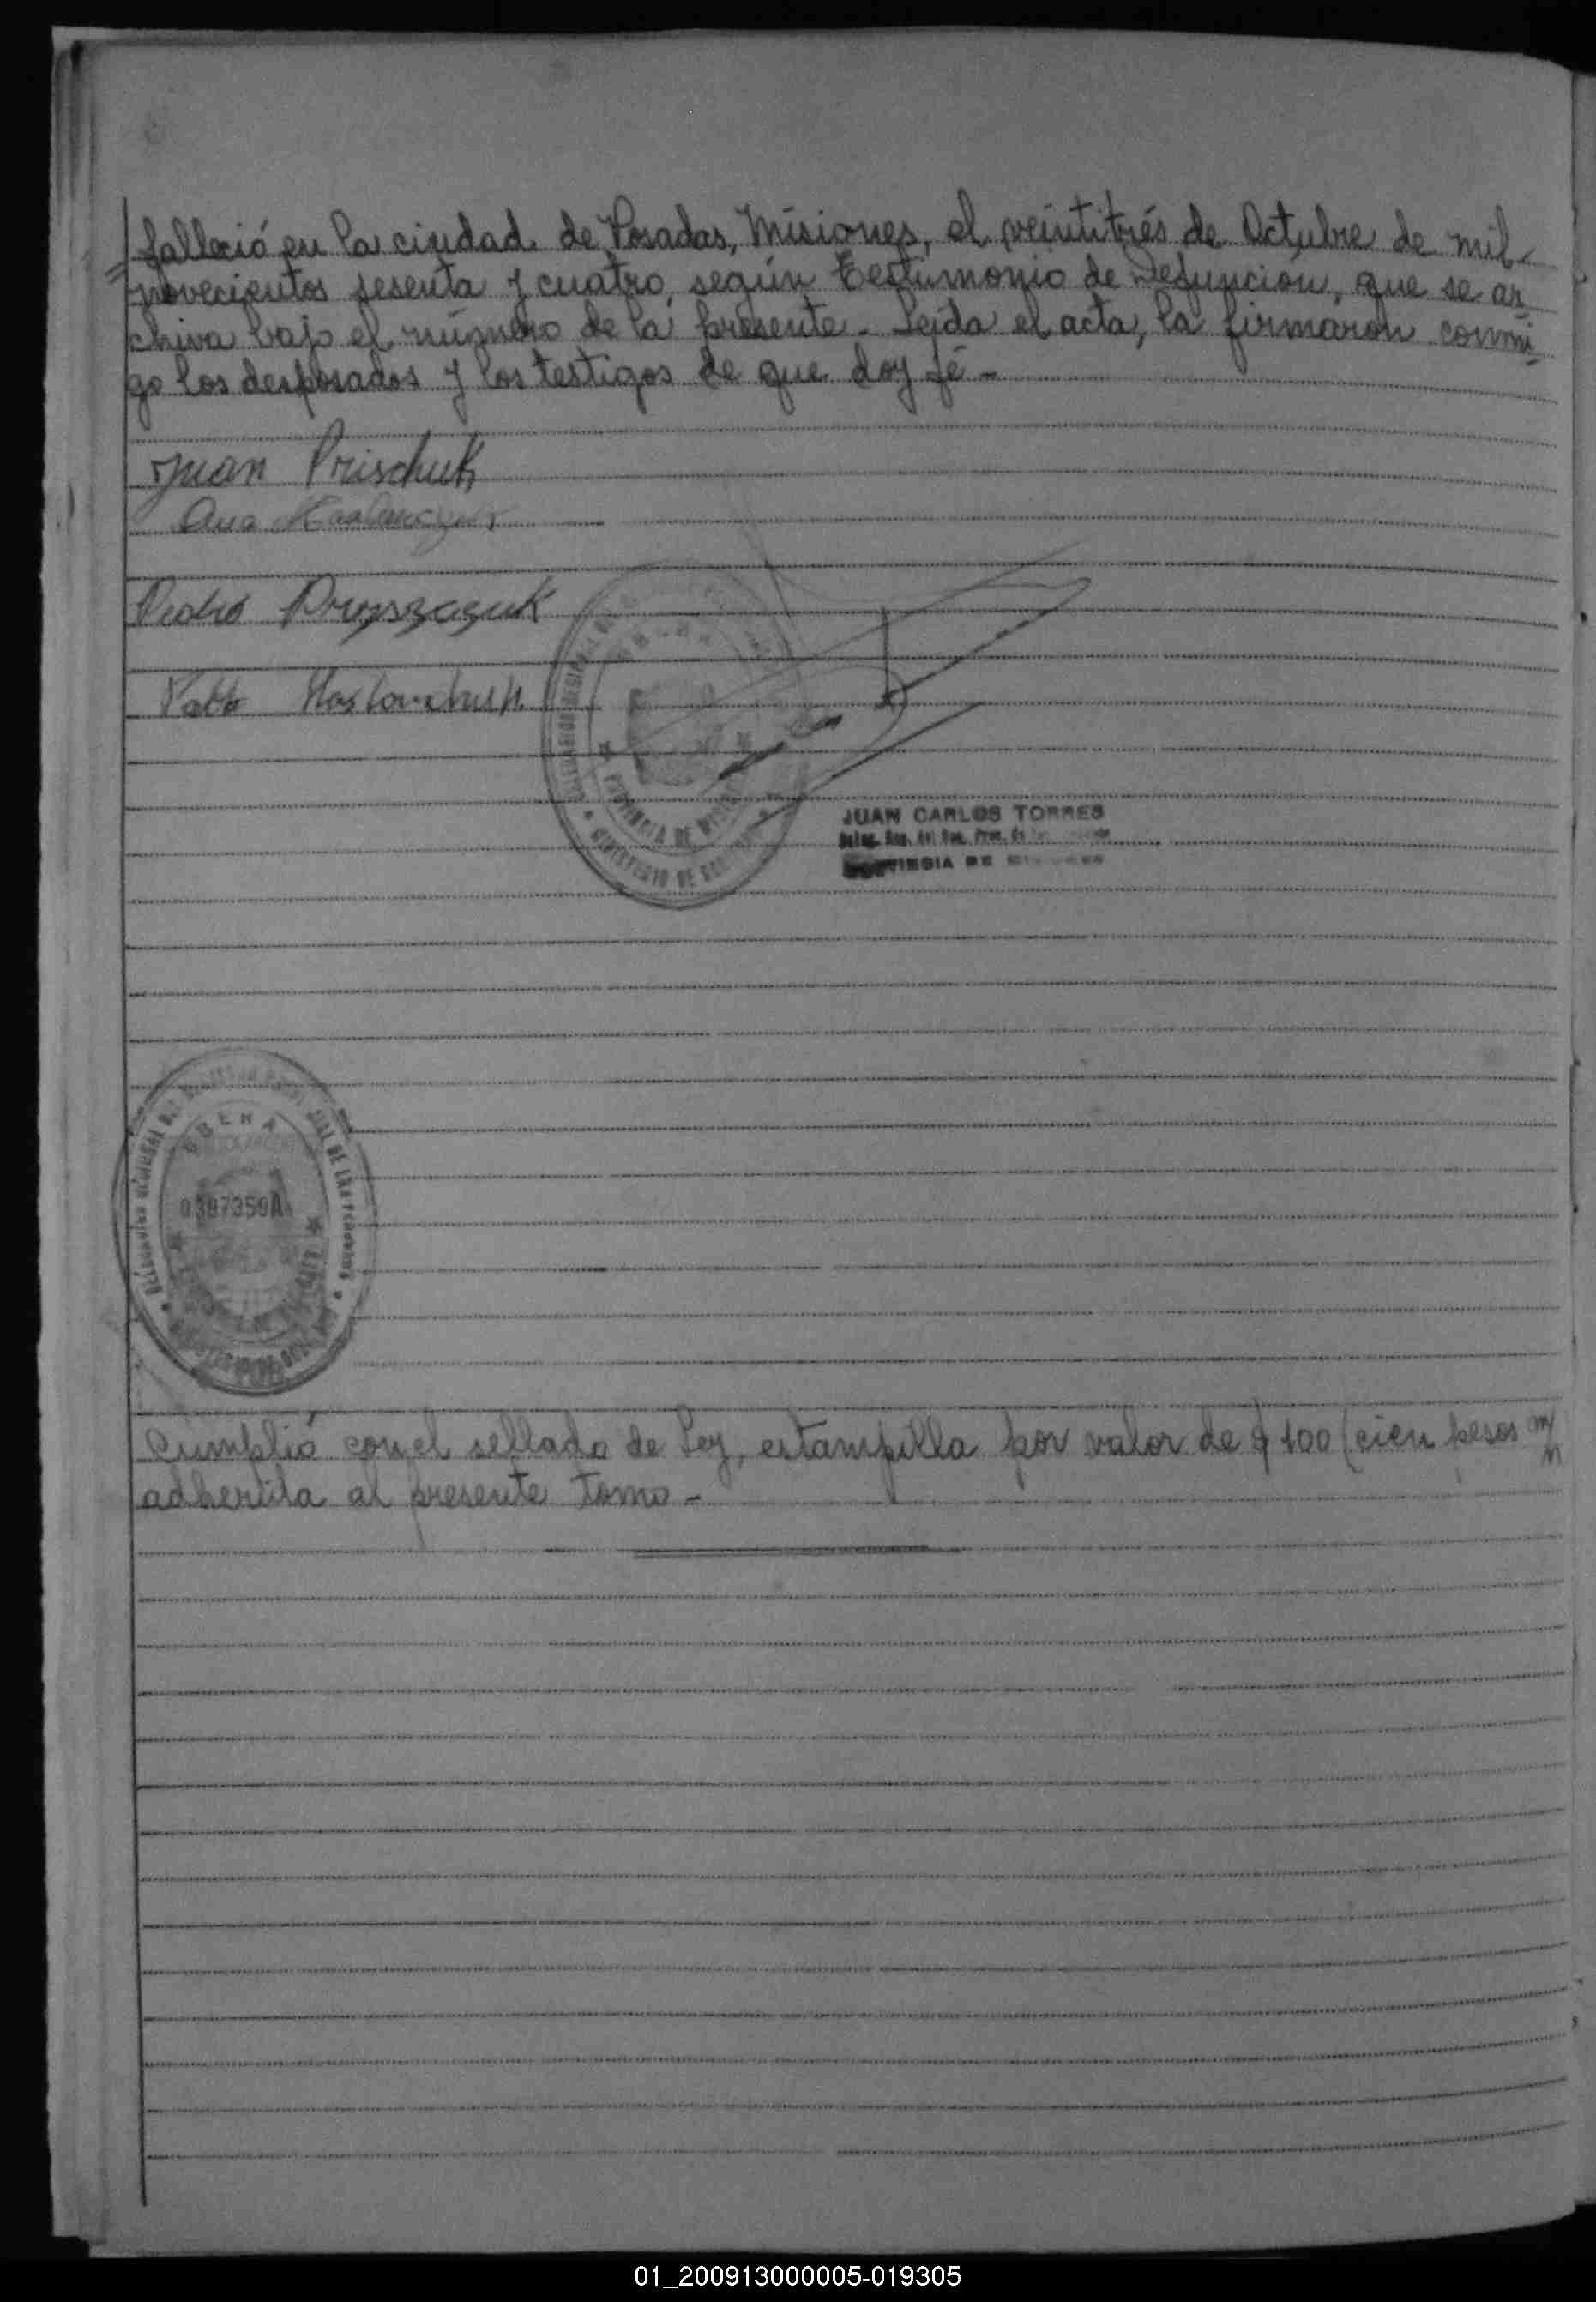 falleció en la ciudad de Posadas, Misiones, el veintitrés de Octubre de mil
novecientos sesenta y cuatro, según Testimonio de Defunción, que se ar
chiva bajo el número de la presente. Leída el acta, la firmaron conmi
go los desposados y los testigos de que doy fé -
Juan Prischuk
Ana
Pedro Pryszczuk
OBERA
PROVINCIA DE
MINISTERIO DE
JUAN CARLOS TORRES
PROVINCIA DE
OBERA
0397359A
Cumplió con el sellado de Ley, estampilla por valor de $ 100 (cien pesos m/n
adherida al presente tomo -
01_200913000005-019305